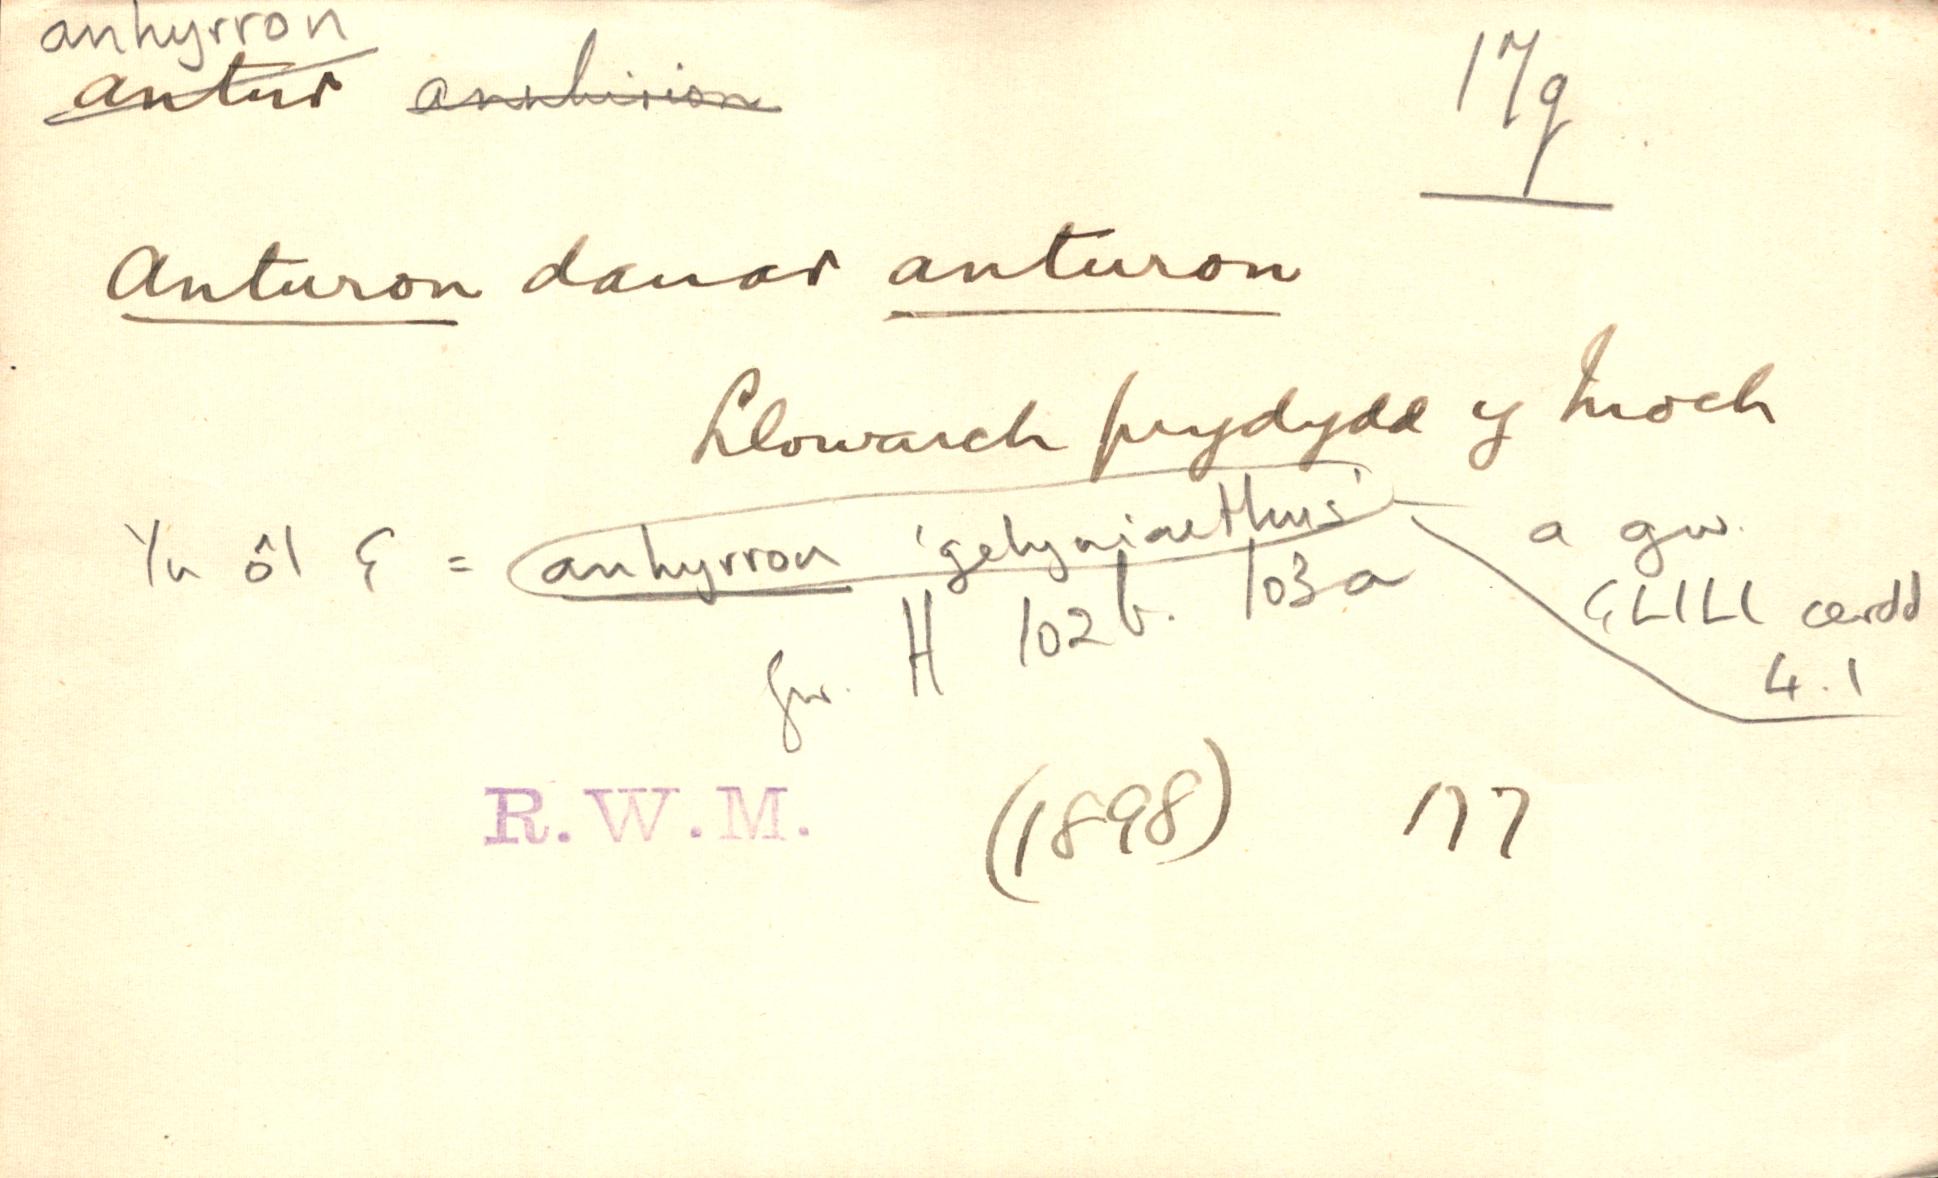 anhyrron
antur anhirion
17g
Anturon danar anturon
Llowarch prydydd y Moch
Yn ôl G = anhyrron 'gelyniaethus'
a gw. GLlLl cerdd 4.1
gw. H 102b. 103a
R.W.M. (1898) 177